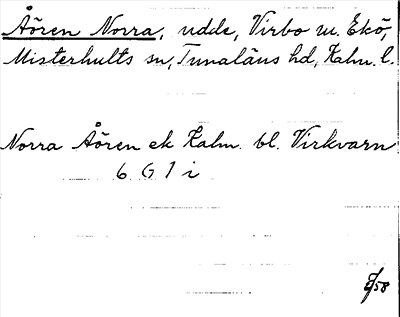 Åören Norra, udde, Virbo m. Ekö,
Misterhults sn, Tunaläns hd, Kalm. l.
Norra Åören ek Kalm. bl. Virkvarn
6 G 1 i
/58